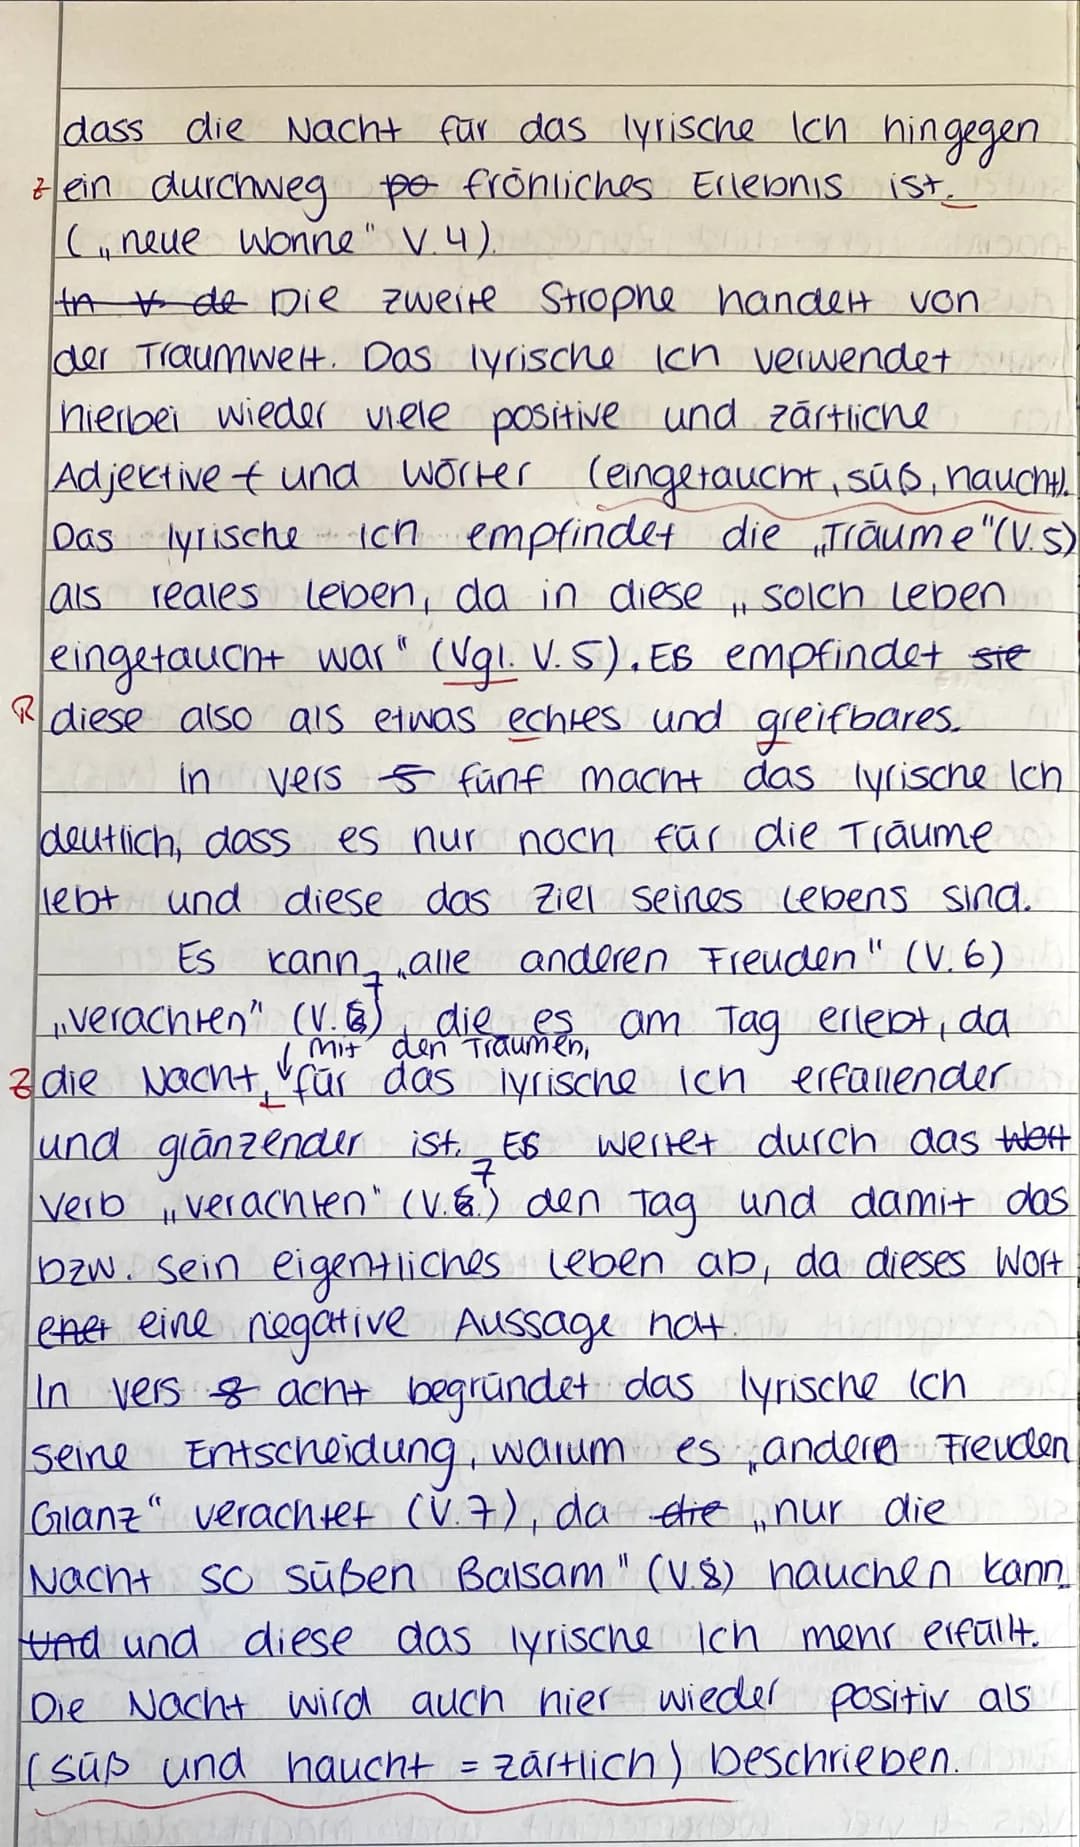 dass die Nacht für das lyrische Ich hingegen
z ein durchweg po fröhliches Erlebnis ist.
(„neue Wonne" V.4).
In V de Die zweite Strophe handelt von
der Traumwelt. Das lyrische Ich verwendet
hierbei wieder viele positive und zärtliche
Adjektive und Wörter (eingetaucht, süß, haucht).
Das lyrische Ich empfindet die „Träume" (V.5)
als reales Leben, da in diese „solch Leben
eingetaucht war" (Vgl. V.5). Es empfindet sie
R diese also als etwas echtes und greifbares.
In Vers 5 fünf macht das lyrische Ich
deutlich, dass es nur noch für die Träume
lebt und diese das Ziel seines Lebens sind.
Es kann „alle anderen Freuden" (V.6)
„verachten" (V.7), die es am Tag erlebt, da
mit den Träumen,
z die Nacht, für das lyrische Ich erfüllender
und glänzender ist. Es wertet durch das Wort
Verb „verachten" (V.7) den Tag und damit das
bzw. sein eigentliches Leben ab, da dieses Wort
einer eine negative Aussage hat.
In Vers 8 acht begründet das lyrische Ich
seine Entscheidung, warum es „andere Freuden
Glanz" verachtet (V.7), da die „nur die
Nacht so süßen Balsam" (V.8) hauchen kann
und und diese das lyrische Ich mehr erfüllt.
Die Nacht wird auch hier wieder positiv als
(süß und haucht = zärtlich) beschrieben.